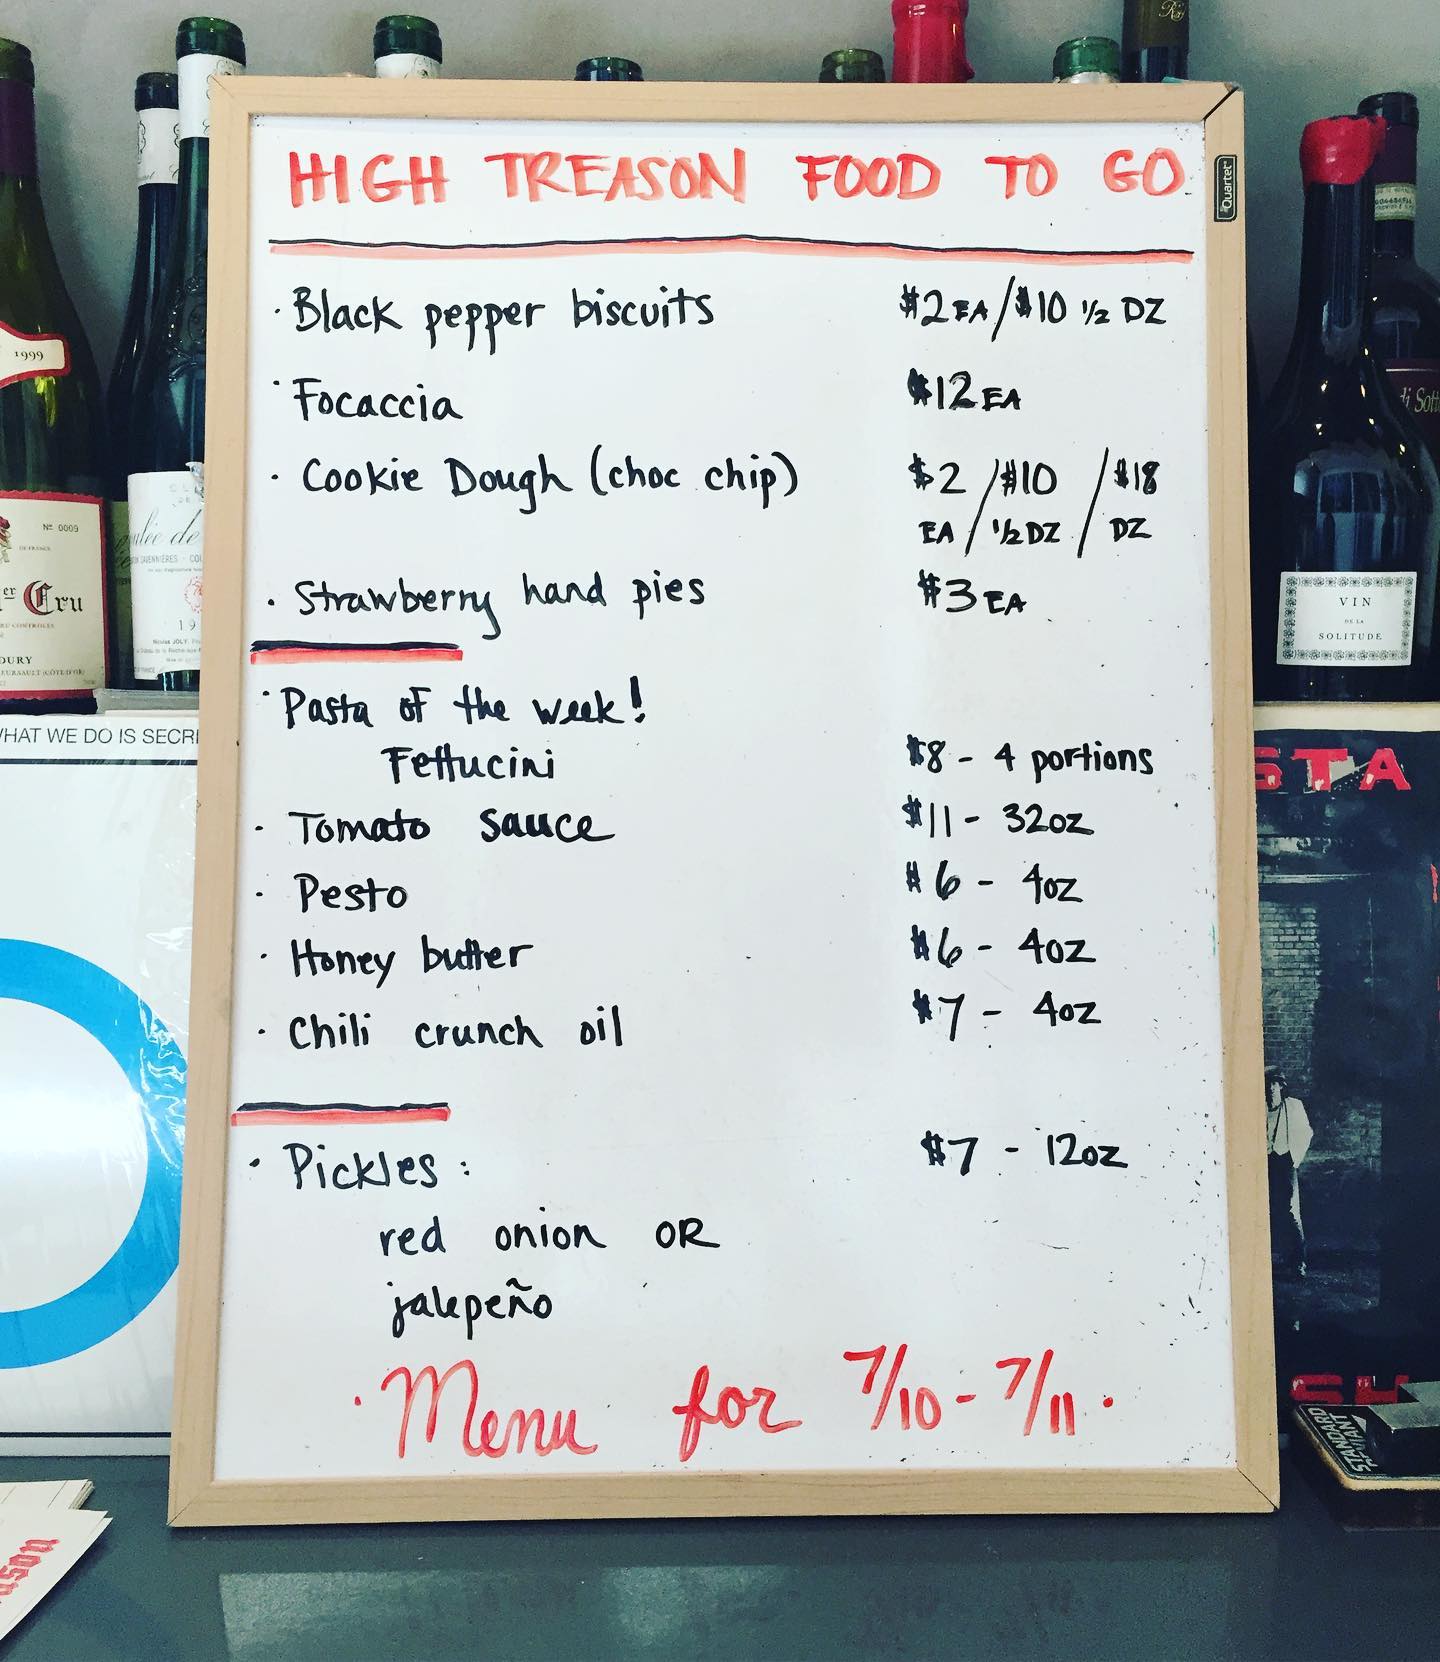 HIGH TREASON FOOD TO GO
Quartet
· Black pepper biscuits $2 EA / $10 ½ DZ
· Focaccia $12 EA
· Cookie Dough (choc chip) $2 / $10 / $18
EA / ½ DZ / DZ
· Strawberry hand pies $3 EA
· Pasta of the week!
Fettucini $8 - 4 portions
· Tomato sauce $11 - 32oz
· Pesto $6 - 4oz
· Honey butter $6 - 4oz
· Chili crunch oil $7 - 4oz
· Pickles: $7 - 12oz
red onion OR
jalepeño
· Menu for 7/10 - 7/11 ·
1999
Nº 0009
er Cru
WHAT WE DO IS SECRE
VIN
DE LA
SOLITUDE
di Sott
STA
STANDARD
DEVIANT